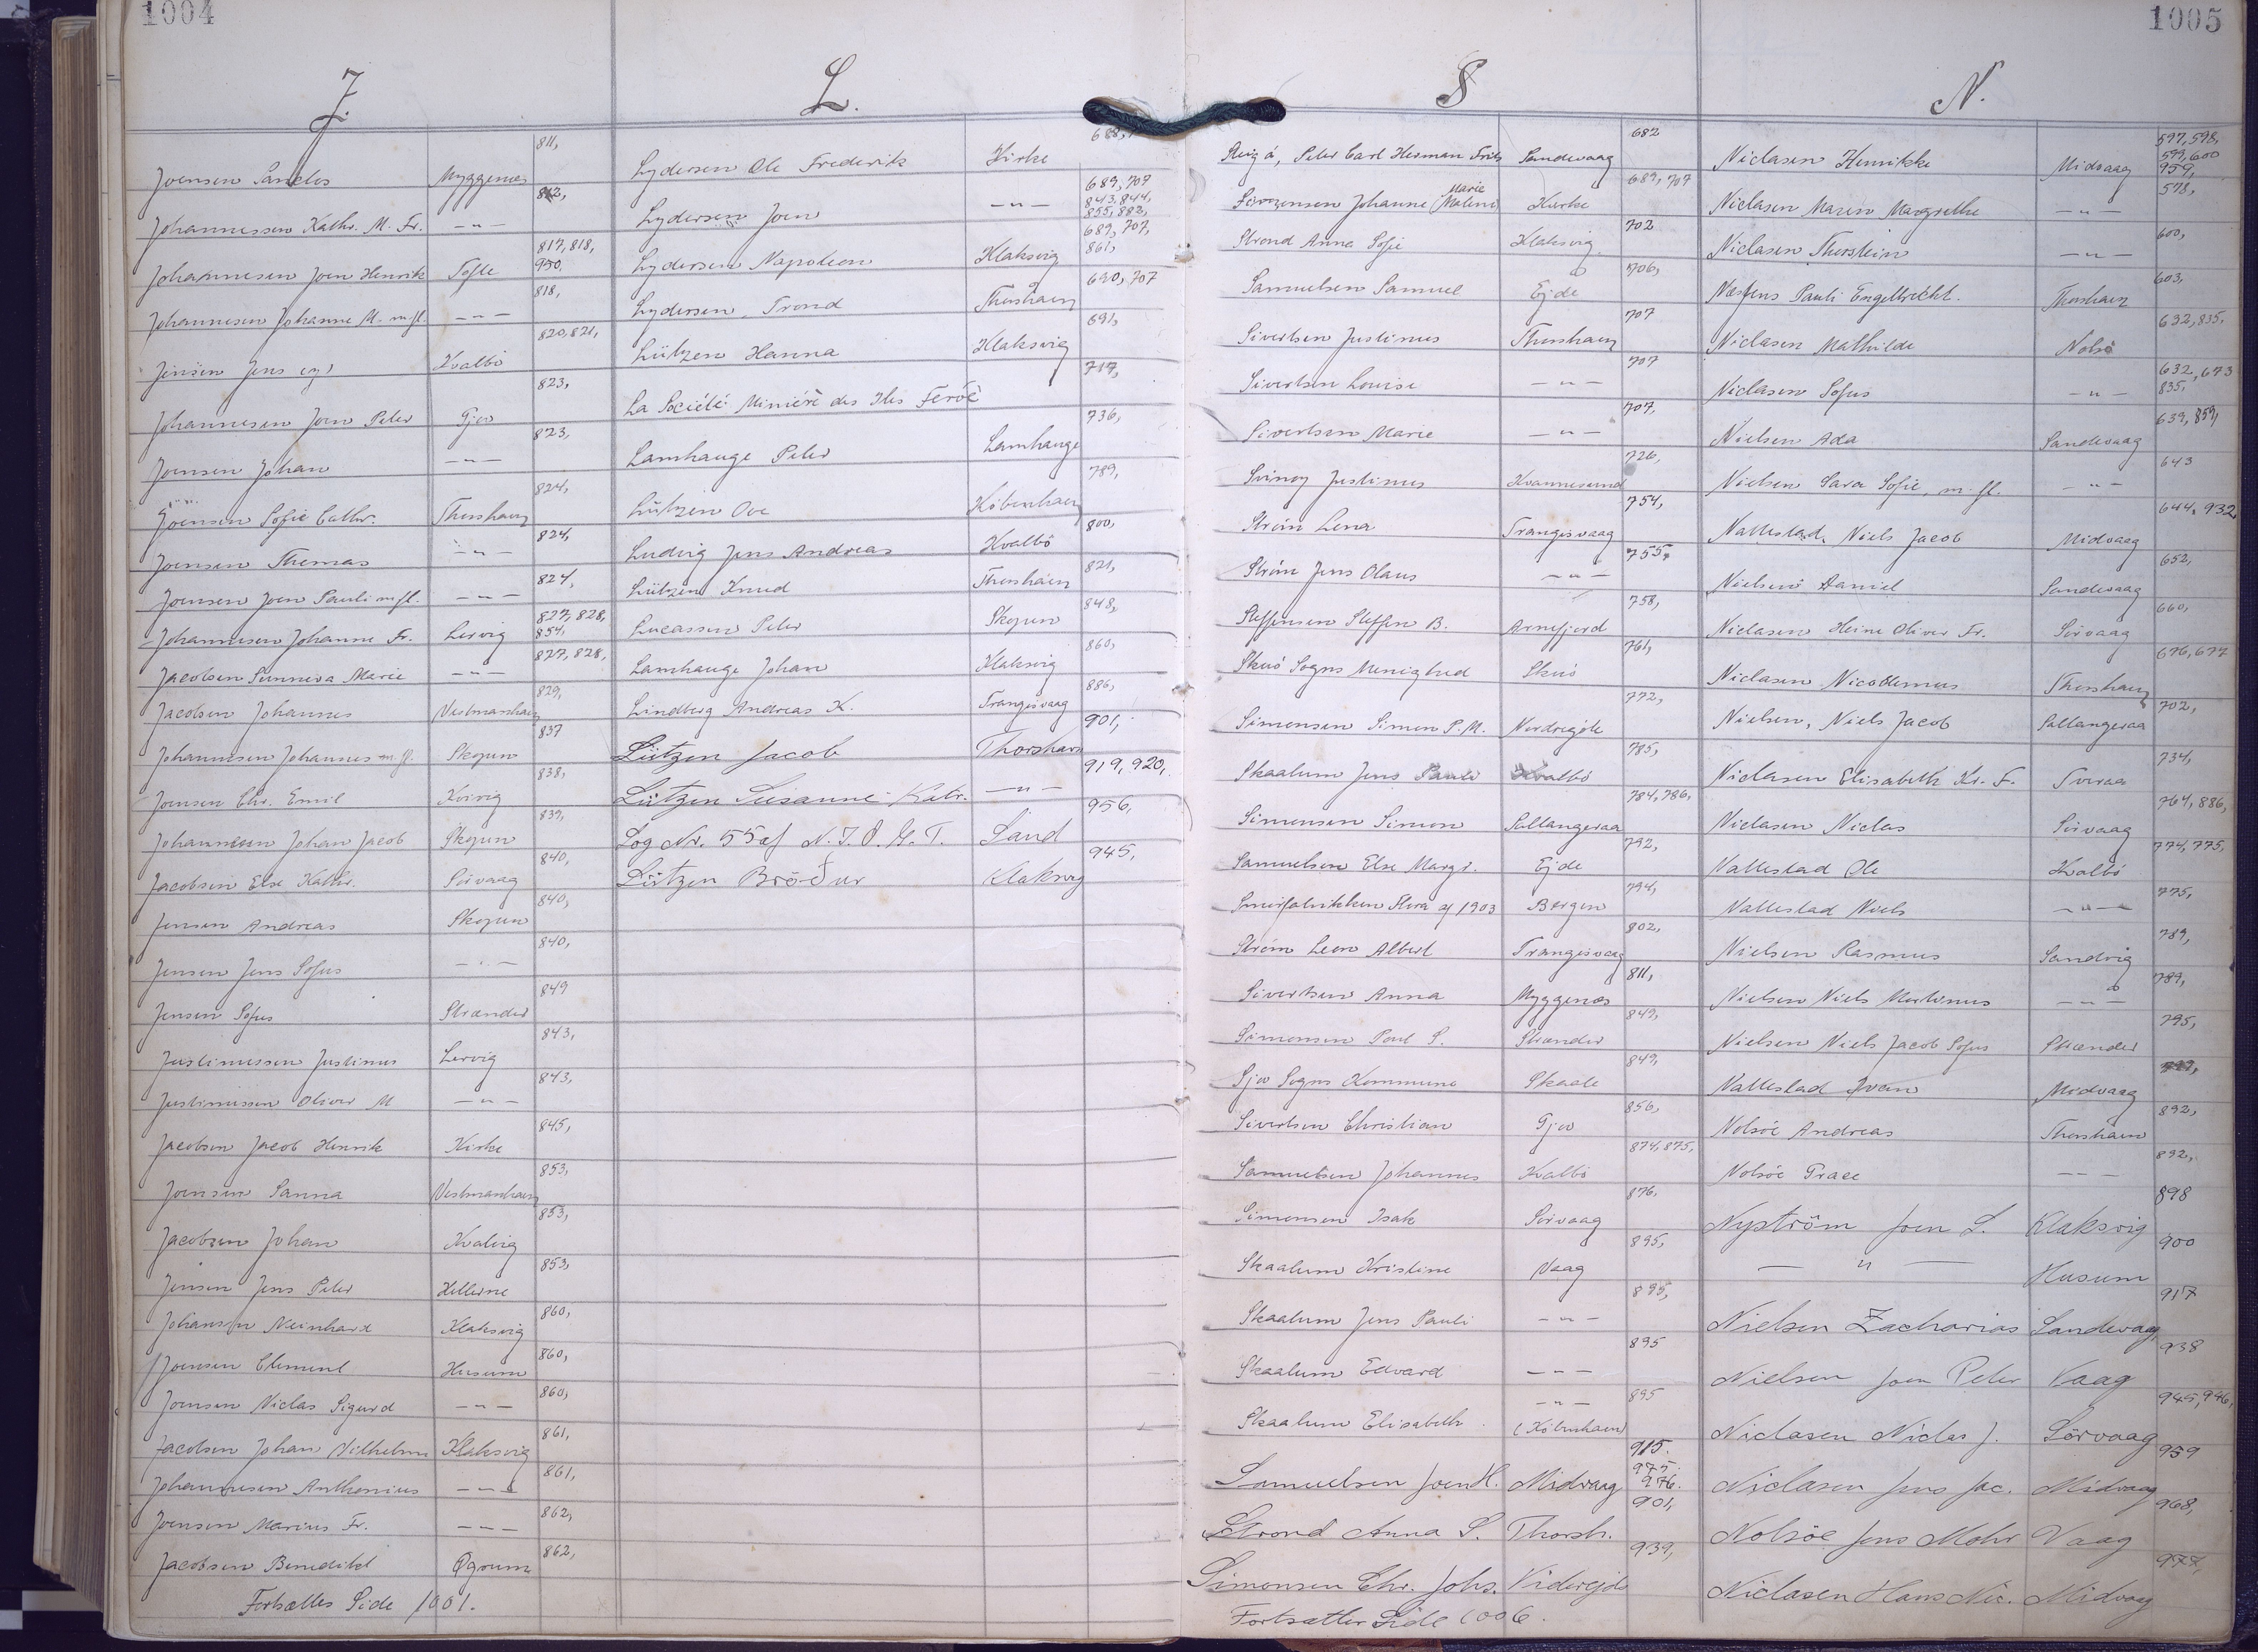 1004
J.
Joensen Sanclos Myggenæs 811,
Johannessen Kathr. M. Fr. — " — 812,
Johannesen Joen Henrik Tofte 817, 818, 950.
Johannesen Johanne M. m fl. — " — 818,
Jensen Jens Kvalbö 820, 821,
Johannesen Joen Peter Gjov 823,
Joensen Johan — " — 823,
Joensen Sofie Cathr. Thorshavn 824,
Joensen Thomas — " — 824,
Joensen Joen Pauli m fl. — " — 824,
Johannesen Johanne Fr. Lervig 827, 828, 854,
Jacobsen Sunneva Marie — " — 827, 828,
Jacobsen Johannes Vestmanhavn 829,
Johannesen Johannes m. fl. Skopun 837
Joensen Chr. Emil Kvivig 838,
Johannesen Johan Jacob Skopun 839,
Jacobsen Else Kathr. Sörvaag 840,
Jensen Andreas Skopun 840,
Jensen Jens Sofus — " — 840,
Jensen Sofus Strænder 849
Justinussen Justinus Lervig 843,
Justinussen Oliver M — " — 843,
Jacobsen Jacob Henrik Kirke 845,
Joensen Sanna Vestmanhavn 853,
Jacobsen Johan Kvalvig 853,
Jensen Jens Peter Hellerne 853,
Johansen Meinhard Klaksvig 860,
Joensen Clement Husum 860,
Joensen Niclas Sigurd — " — 860,
Jacobsen Johan Vilhelm Klaksvig 861,
Johannesen Anthonius — " — 861,
Joensen Marius Fr. — " — 862,
Jacobsen Benedikt Øgrum 862,
Fortsættes Side 1001.
L.
Lydersen Ole Frederik Kirke 688,
Lydersen Joen — " — 689, 707 843, 844, 855, 882,
Lydersen Napoleon Klaksvig 689, 707, 861,
Lydersen Trond Thorshavn 690, 707
Lützen Hanna Klaksvig 691,
La Société Minière des Iles Feröe 717,
Lamhauge Peter Lamhauge 736,
Lützen Ove Köbenhavn 789,
Ludvig Jens Andreas Kvalbö 800,
Lützen Knud Thorshavn 821,
Lucassen Peter Skopun 848,
Lamhauge Johan Klaksvig 860,
Lindberg Andreas K. Trangisvaag 886,
Lützen Jacob Thorshavn 901,
Lützen Susanne Katr. — " — 919, 920,
Log Nr. 55 af N. I. O. G. T. Sand 956,
Lützen Bröður Klaksvig 945,
1005
S
Peter Carl Herman Frits Sandevaag 682
Sörensen Johanne (Marie Malene) Kirke 689, 707
Strond Anna Sofie Klaksvig 702
Samuelsen Samuel Ejde 706,
Sivertsen Justinus Thorshavn 707
Sivertsen Louise — " — 707
Sivertsen Marie — " — 707,
Svinoy Justinus Kvannesund 726,
Ström Lena Trangisvaag 754,
Ström Jens Olaus — " — 755,
Steffensen Steffen B. Arnefjord 758,
Skuö Sogns Menighed Skuö 761,
Simonsen Simon P. M. Nordregöte 772,
Skaalum Jens Pauli Kvalbö 785,
Simonsen Simon Saltangeraa 784, 786,
Samuelsen Else Margr. Ejde 792,
Smörfabrikken Flora af 1903 Bergen 794,
Ström Leon Albert Trangisvaag 802,
Sivertsen Anna Myggenæs 811,
Simonsen Poul S. Strænder 849,
Sjov Sogns Kommune Skaale 849,
Sivertsen Christian Gjov 856,
Samuelsen Johannes Kvalbö 874, 875,
Simonsen Isak Sörvaag 876,
Skaalum Kristine Vaag 895,
Skaalum Jens Pauli — " — 895,
Skaalum Edvard — " — 895
Skaalum Elisabeth — " — (Köbenhavn) 895
Samuelsen Joen H. Midvaag 915. 975. 976.
Strond Anna S. Thorsh. 901,
Simonsen Chr. Johs. Viderejde 939,
Fortsætter Side 1006.
N.
Niclasen Henrikke Midvaag 597, 598, 599, 600 959,
Niclasen Maren Margrethe — " — 598,
Niclasen Thorstein — " — 600,
Næsfens Pauli Engelbrecht. Thorshavn 603,
Niclasen Mathilde Nolsö 632, 835.
Niclasen Sofus — " — 632, 673 835.
Nielsen Ada Sandevaag 639, 859,
Nielsen Sara Sofie, m. fl. — " — 643
Vallestad, Niels Jacob Midvaag 644, 932
Nielsen Daniel Sandevaag 652,
Niclasen Heine Oliver Fr. Sörvaag 660,
Niclasen Nicodemus Thorshavn 676, 677
Nielsen, Niels Jacob Saltangeraa 702,
Niclasen Elisabeth Kr. F. Sveraa 734,
Niclasen Niclas Sörvaag 764, 886,
Vallestad Ole Kvalbö 774, 775,
Vallestad Niels — " — 775,
Nielsen Rasmus Sandvig 789,
Nielsen Niels Martinus — " — 789,
Nielsen Niels Jacob Sofus Strænder 795,
Vallestad Ivan Midvaag
Nolsöe Andreas Thorshavn 892,
Nolsöe Grace — — 892,
Nyström Joen S. Klaksvig 898
— " — Husum 900
Nielsen Zacharias Sandevaag 917
Nielsen Joen Peter Vaag 938
Niclasen Niclas J. Sörvaag 945, 946,
Niclasen Jens Jac. Midvaag 959
Nolsöe Jens Mohr Vaag 968,
Niclasen Hans Nic. Midvaag 977,